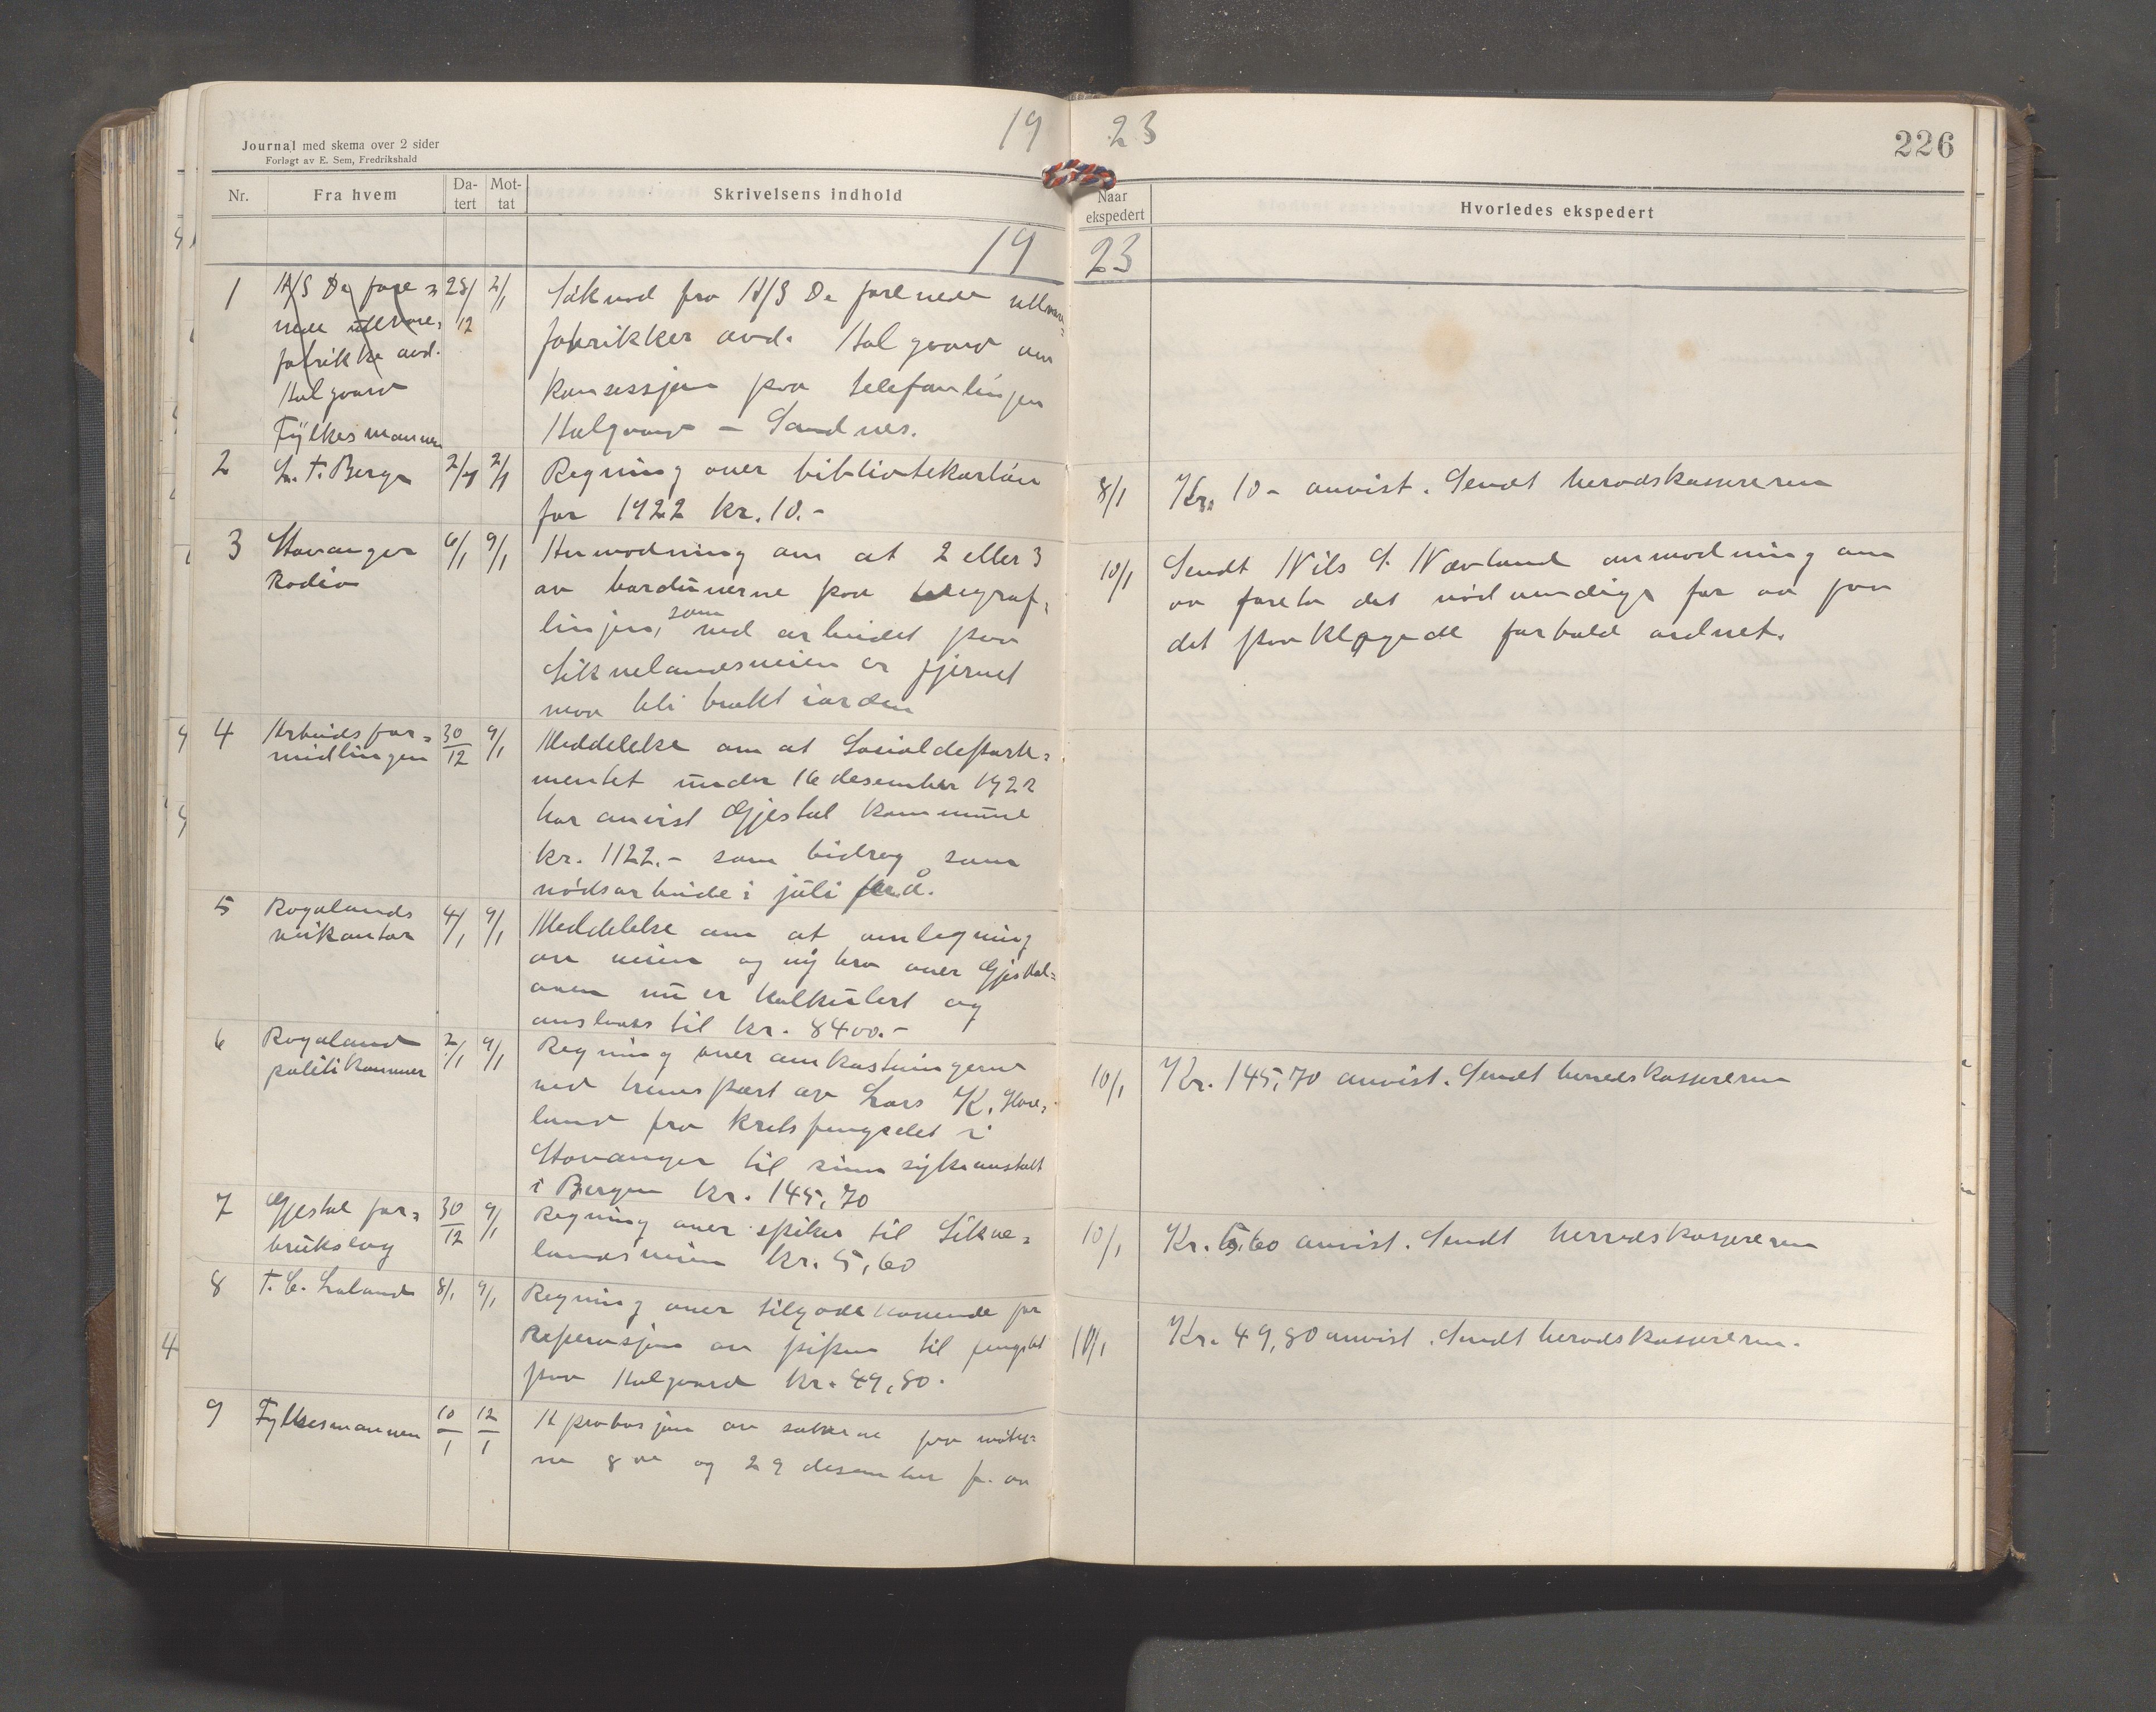 19 23
226
Journal med skema over 2 sider
Forlagt av E. Sem, Fredrikshald
Nr.
Fra hvem
Da-
tert
Mot-
tat
Skrivelsens indhold
Naar
ekspedert
Hvorledes ekspedert
19 23
1
A/S De fore=
nede uldvare=
fabrikke avd.
Aalgaard
Fylkesmannen
28/12
2/1
Søknad fra A/S De forenede uldvare=
fabrikker avd. Aalgaard om
konsessjon paa telefonlinjen
Aalgaard - Sandnes.
2
L. T. Berge
2/1
2/1
Regning over bibliotekarløn
for 1922 kr. 10.-
8/1
Kr. 10- anvist. Sendt herredskassereren
3
Stavanger
Radio
6/1
9/1
Anmodning om at 2 eller 3
av bardunerne paa telegraf=
linjen, som ved arbeidet paa
Sikvelandsveien er fjernet
maa bli bragt iorden
10/1
Sendt Nils S. Nævland anmodning om
aa foreta det nødvendige for aa faa
det paaklagede forhold ordnet.
4
Arbeidsfor=
midlingen
30/12
9/1
Meddelelse om at Sosialdeparte=
mentet under 16 desember 1922
har anvist Gjestal kommune
kr. 1122.- som bidrag som
nødsarbeide i juli s.å.
5
Rogalands
veikontor
4/1
9/1
Meddelelse om at omlegning
av veien og ny bro over Gjestdal=
aaen nu er kalkulert og
anslaaes til kr. 8400.-
6
Rogaland
politikammer
2/1
9/1
Regning over omkostningerne
ved transport av Lars K. Have=
land fra kretsfengselet i
Stavanger til sinnsykeanstalt
i Bergen kr. 145,70
10/1
Kr. 145,70 anvist. Sendt herredskassereren
7
Gjestal for=
brukslag
30/12
9/1
Regning over spiker til Sikve=
landsveien kr. 5,60
10/1
Kr. 5,60 anvist. Sendt herredskassereren
8
T. C. Laland
8/1
9/1
Regning over tilgodehavende for
Reperasjon av pipen til fengslet
paa Aalgaard kr. 49,80.
10/1
Kr. 49,80 anvist. Sendt herredskassereren.
9
Fylkesmannen
10/1
12/1
Approbasjon av sakerne fra møte=
ne 8de og 29 desember f. aa